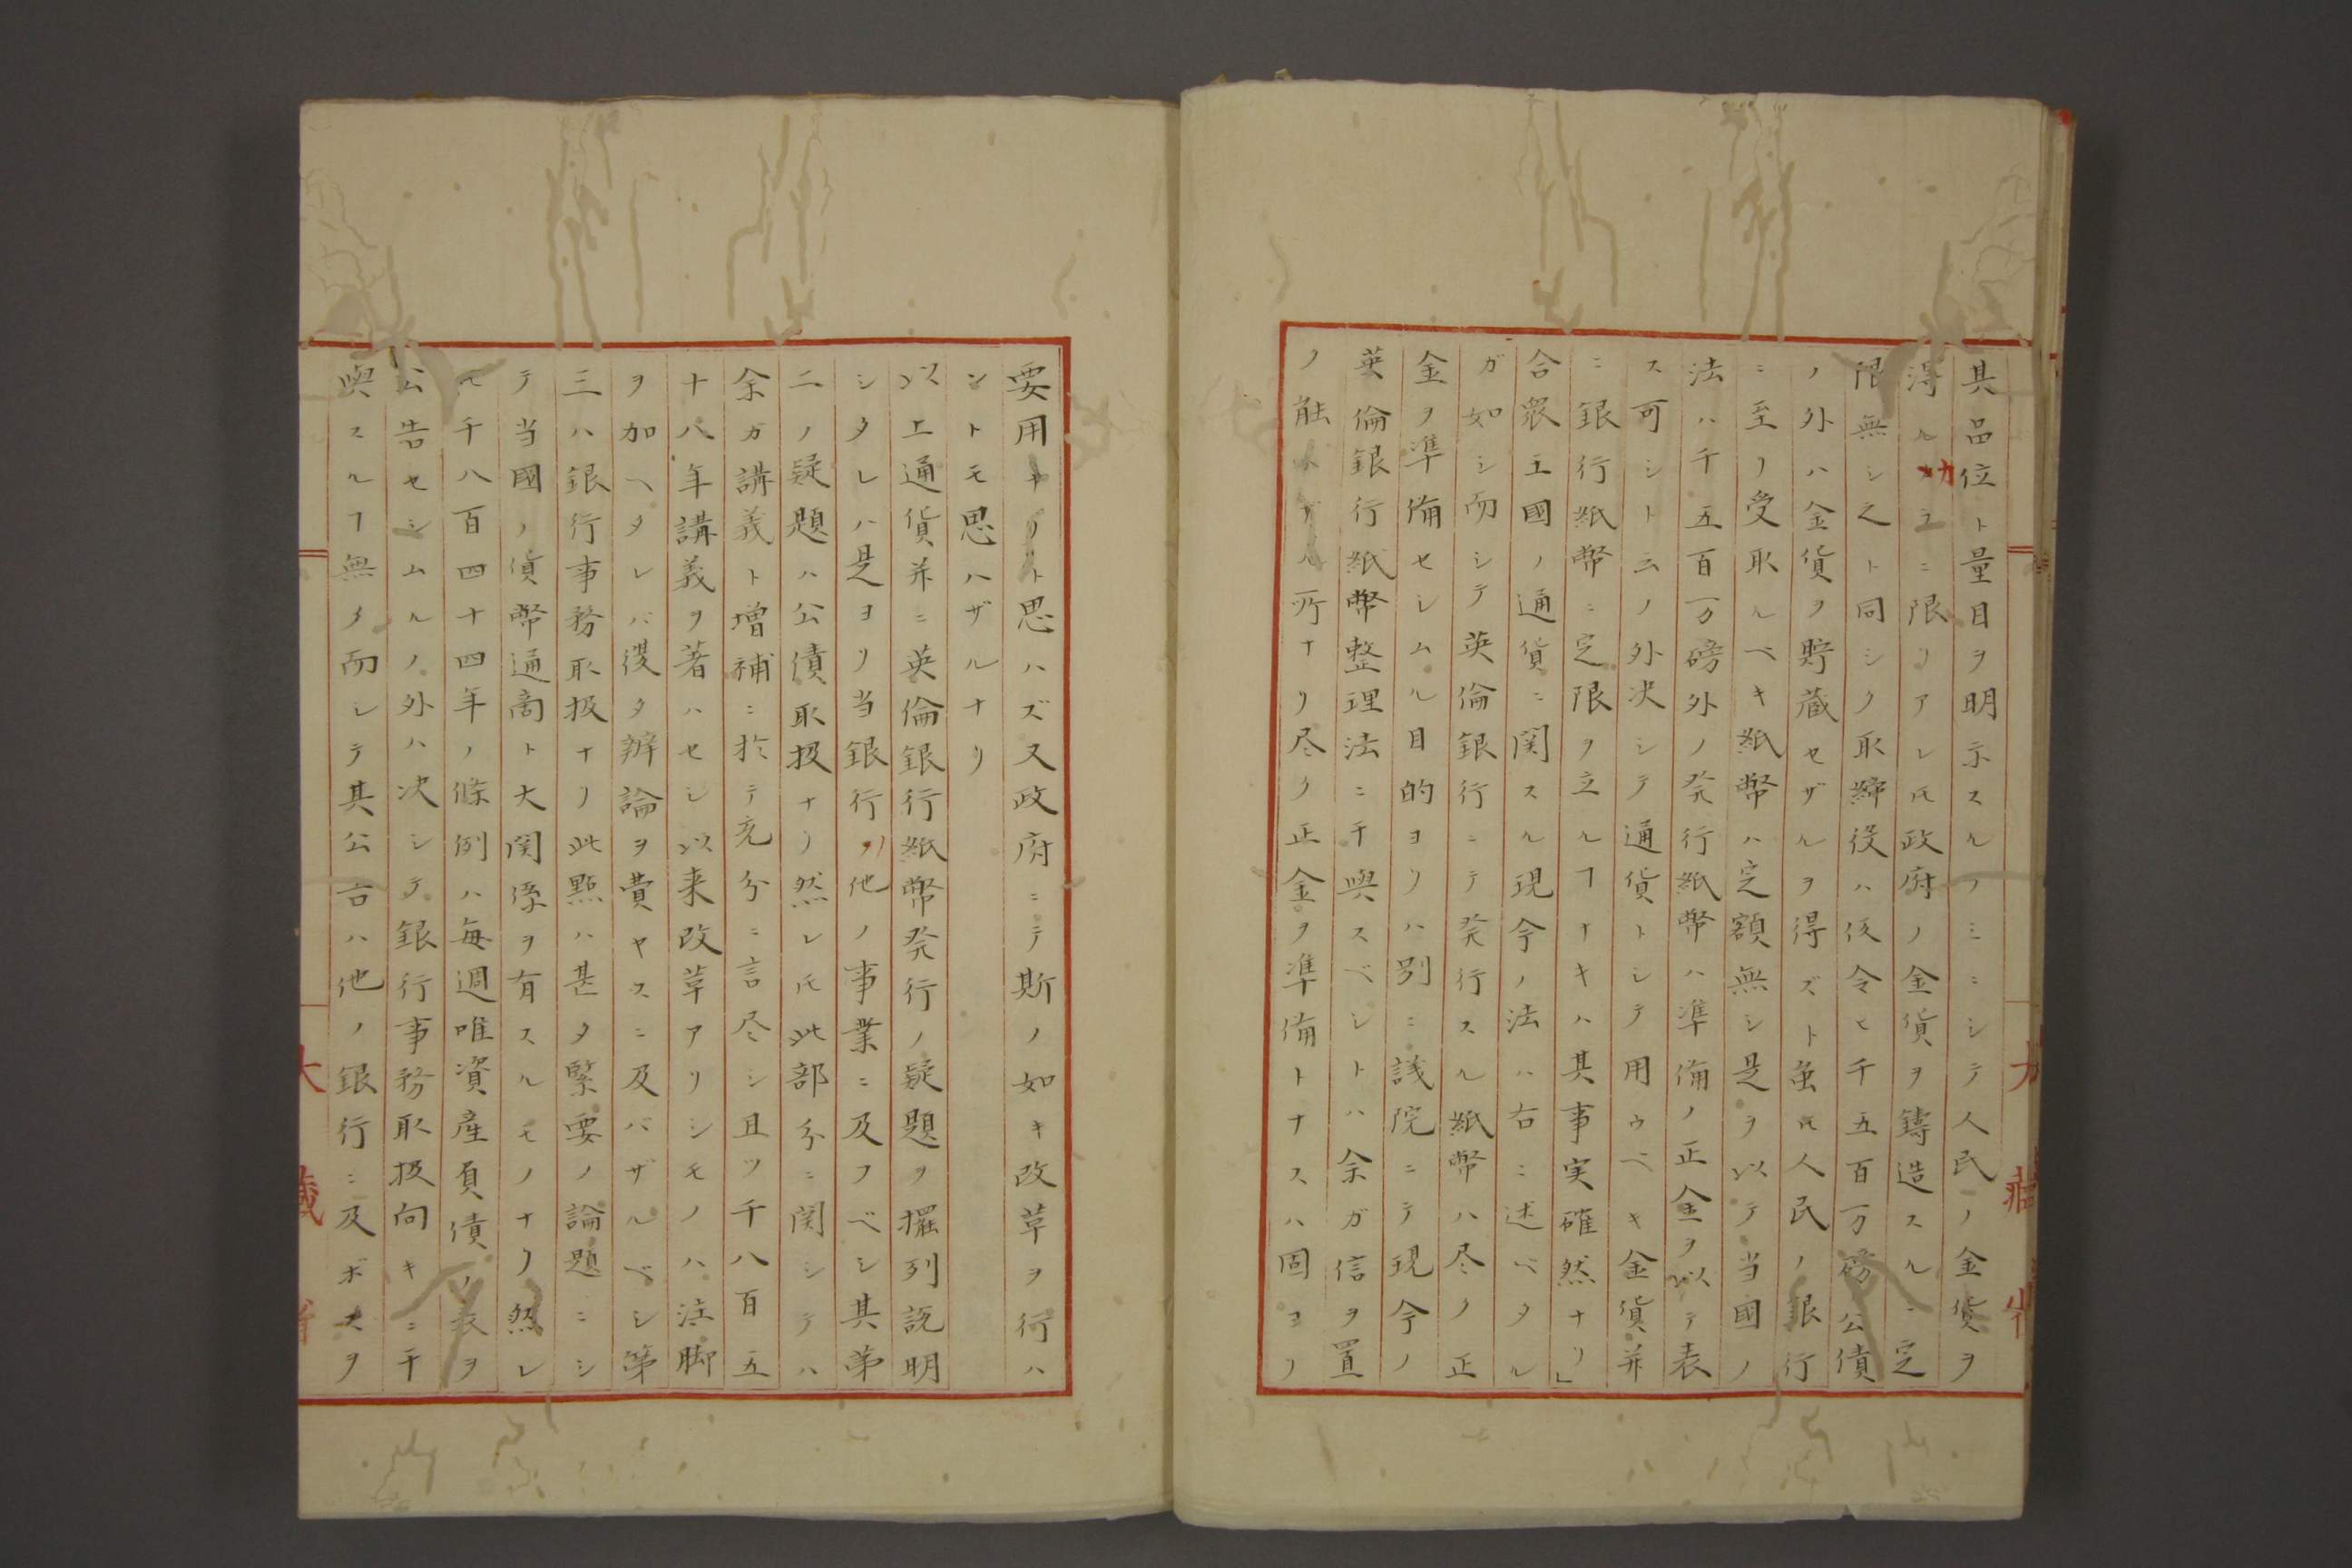 其品位ト量目ヲ明示スルノミニシテ人民ノ金貨ヲ
得ル功ヨニ限リアレ𪜈政府ノ金貨ヲ鋳造スルニ定
限無シ之ト同シク取締役ハ仮令ヒ千五百万磅公債
ノ外ハ金貨ヲ貯蔵セザルヲ得ズト虽𪜈人民ノ銀行
ニ至リ受取ルベキ紙幣ハ定額無シ是ヲ以テ当國ノ
法ハ千五百万磅外ノ発行紙幣ハ準備ノ正金ヲ以テ表
ス可シト云ノ外决シテ通貨トシテ用ウベキ金貨并
ニ銀行紙幣ニ定限ヲ立ルヿナキハ其事実確然ナリ」
合衆王國ノ通貨ニ関スル現今ノ法ハ右ニ述ベタル
ガ如シ而シテ英倫銀行ニテ発行スル紙幣ハ尽ク正
金ヲ準備セシムル目的ヨリハ別ニ議院ニテ現今ノ
英倫銀行紙幣整理法ニ干與スベシトハ余ガ信ヲ置
ノ能ハザル所ナリ尽ク正金ヲ準備トナスハ固ヨリ
要用ナリト思ハズ又政府ニテ斯ノ如キ改革ヲ行ハ
ントモ思ハザルナリ
以上通貨并ニ英倫銀行紙幣発行ノ疑題ヲ擺列説明
シタレハ是ヨリ当銀行ノ他ノ事業ニ及フベシ其第
二ノ疑題ハ公債取扱ナリ然レ𪜈此部分ニ関シテハ
余ガ講義ト増補ニ於テ充分ニ言尽シ且ツ千八百五
十八年講義ヲ著ハセシ以来改革アリシモノハ注脚
ヲ加ヘタレバ復タ辨論ヲ費ヤスニ及バザルベシ第
三ハ銀行事務取扱ナリ此點ハ甚タ緊要ノ論題ニシ
テ当國ノ貨幣通商ト大関係ヲ有スルモノナリ然レ
𪜈千八百四十四年ノ條例ハ毎週唯資産負債ノ表ヲ
公告セシムルノ外ハ决シテ銀行事務取扱向キニ干
與スルヿ無ク而シテ其公告ハ他ノ銀行ニ及ボスヲ
大藏省
大藏省